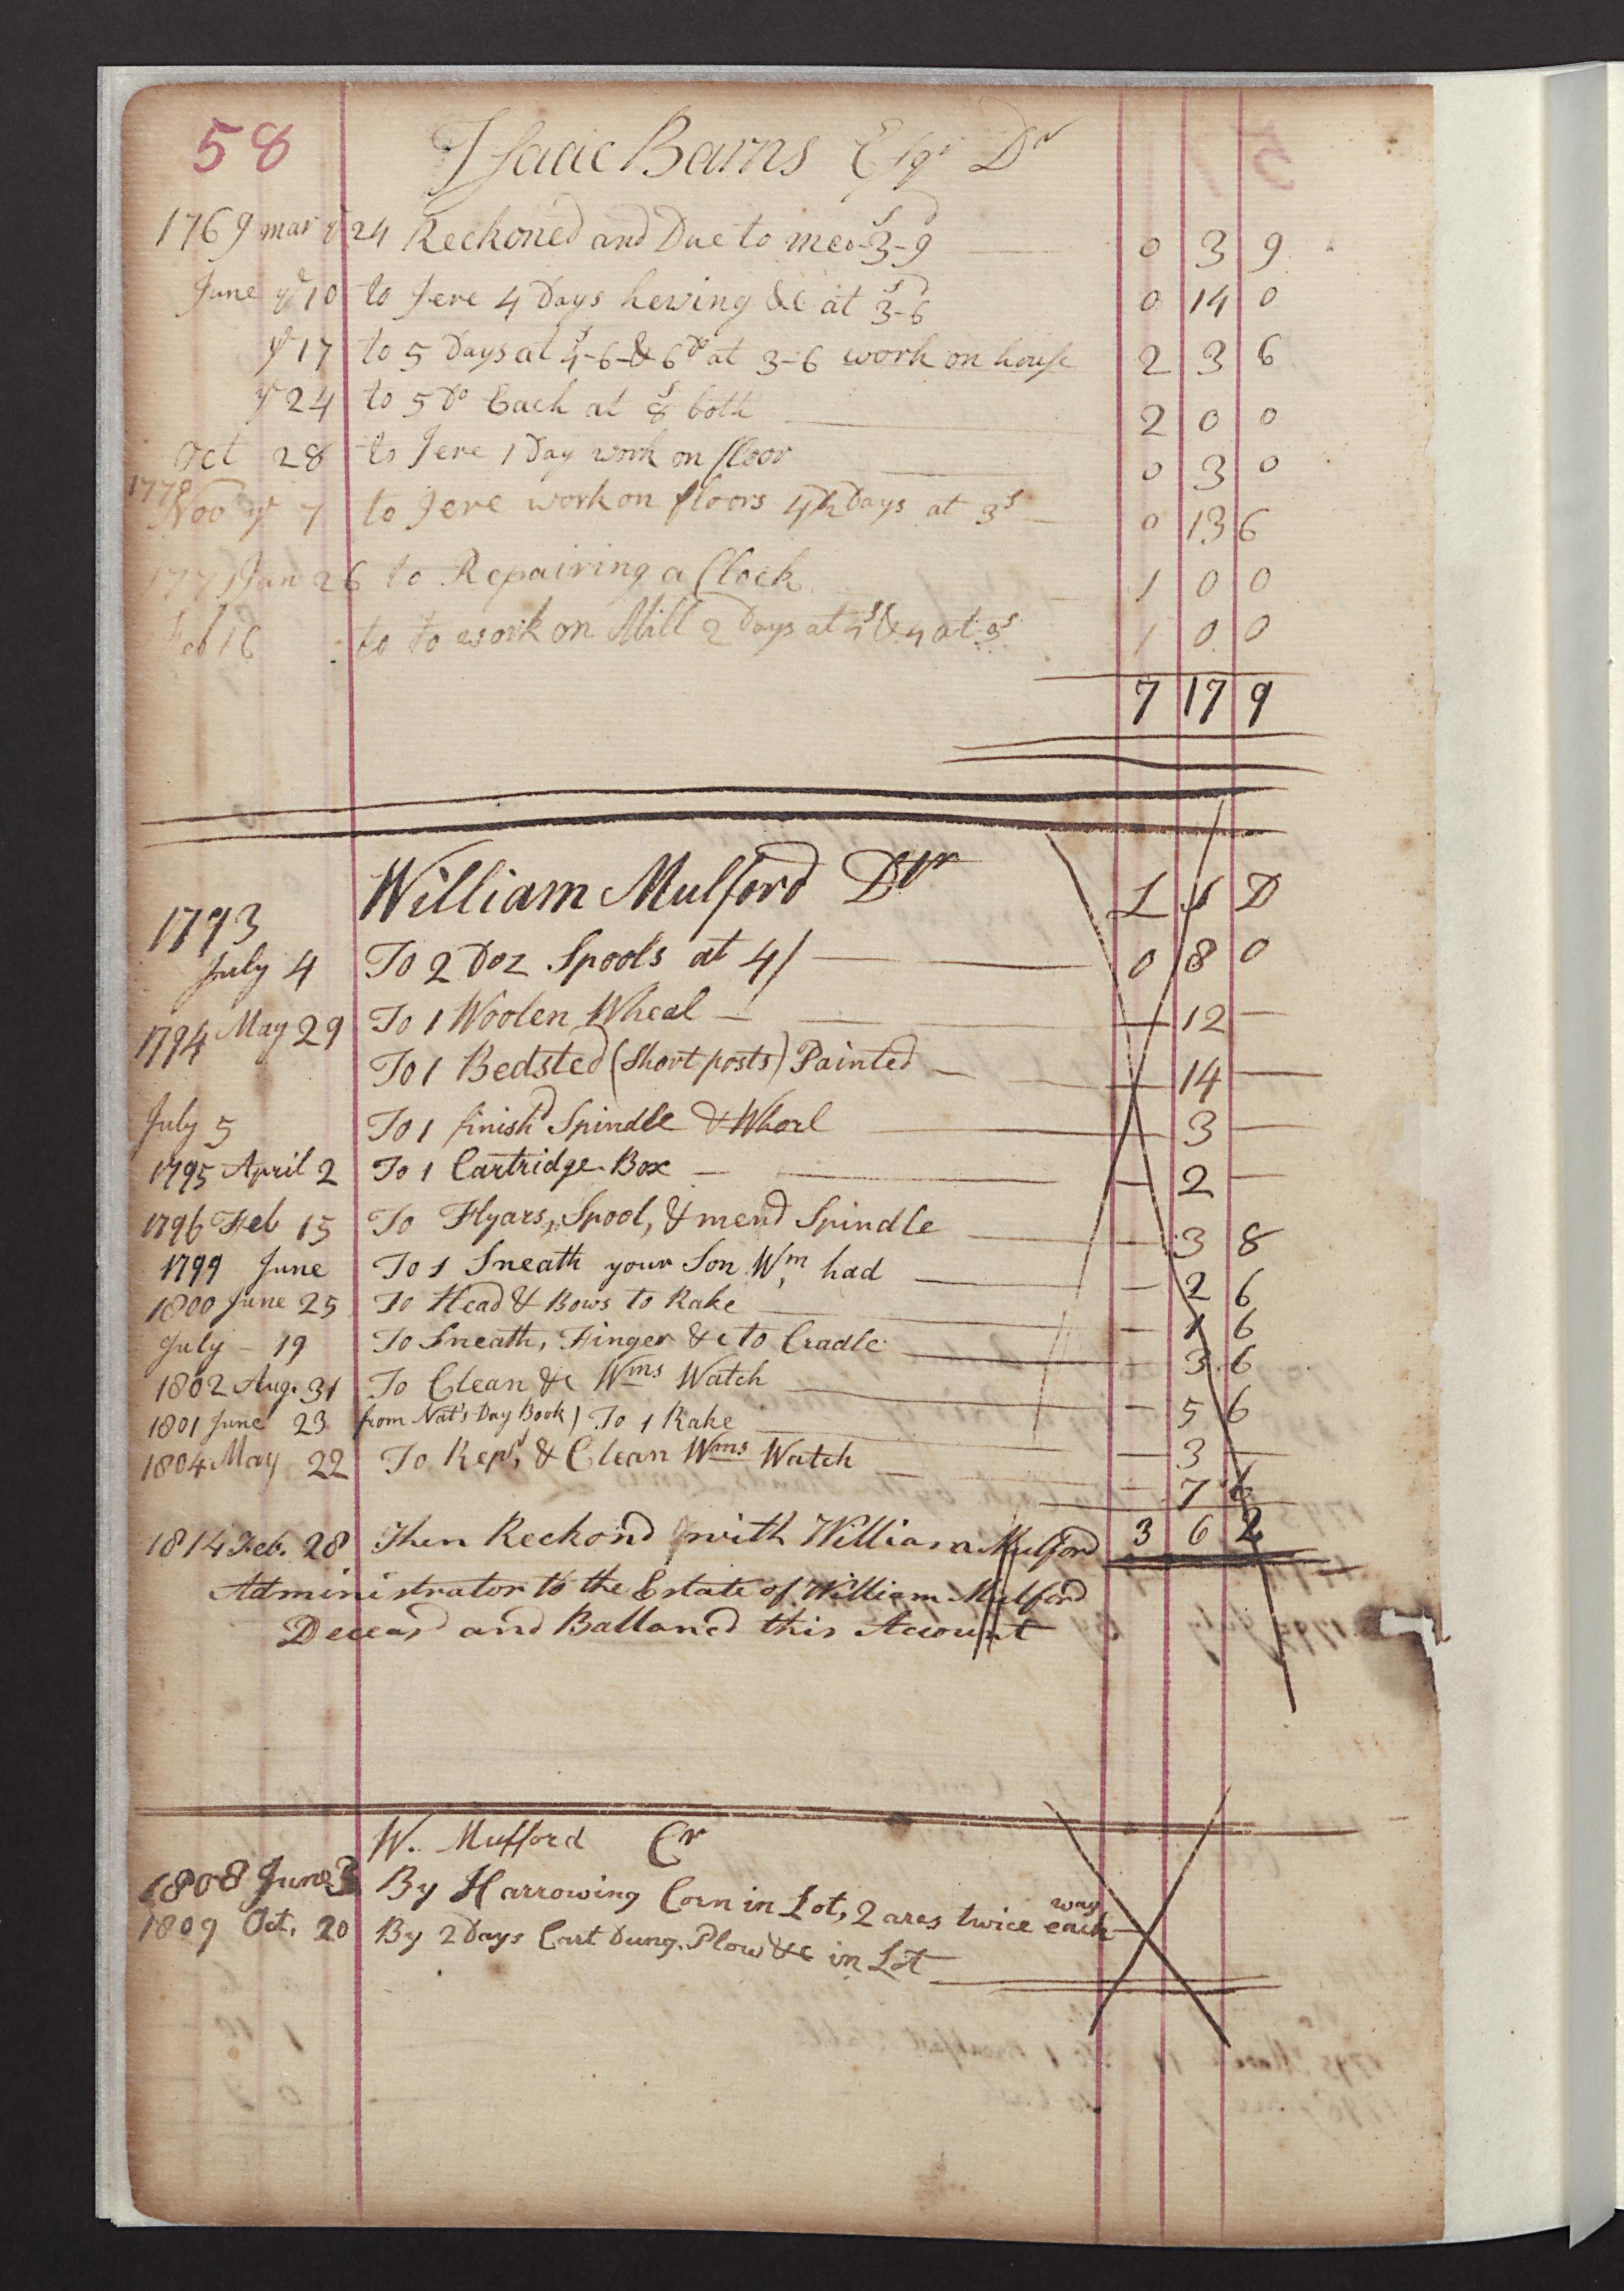 58 Isaac Barns Esqr Dr
1769 mar ye 24 Reckoned and Due to me 0-3-9 0 3 9
June ye 10 to Jere 4 Days hewing &c at 3-6 0 14 0
ye 17 to 5 Days at 4-6 & 6 Do at 3-6 work on house 2 3 6
ye 24 to 5 Do Each at 8s both 2 0 0
Oct 28 to Jere 1 Day work on floor 0 3 0
1770
Nov ye 7 to Jere work on floors 4½ Days at 3s 0 13 6
1771 Jan 26 to Repairing a Clock 1 0 0
Feb 16 to to work on Mill 2 Days at 4s & 4 at 3s 1 0 0
7 17 9
William Mulford Dtr L S D
1793
July 4 To 2 Doz Spools at 4/ 0 8 0
1794 May 29 To 1 Woolen Wheal — 12 —
To 1 Bedsted (Short posts) Painted — 14 —
July 5 To 1 finishd Spindle & Whorl — 3 —
1795 April 2 To 1 Cartridge Box — 2 —
1796 Feb 15 To Flyars, Spool, & mend Spindle — 3 8
1799 June To 1 Sneath your Son Wm had — 2 6
1800 June 25 To Head & Bows to Rake — 1 6
July - 19 To Sneath, Finger &c to Cradle — 3 6
1802 Aug. 31 To Clean &c Wms Watch — 5 6
1801 June 23 from Nat's Day Book) To 1 Rake — 3 —
1804 May 22 To Repr, & Clean Wms Watch — 7 6
1814 Feb. 28 Then Reckond with William Mulford 3 6 2
Administrator to the Estate of William Mulford
Deceasd and Balland this Account
W. Mufford Cr
1808 June 3 By Harrowing Corn in Lot, 2 ares twice each way
1809 Oct. 20 By 2 Days Cart Dung. Plow &c in Lot